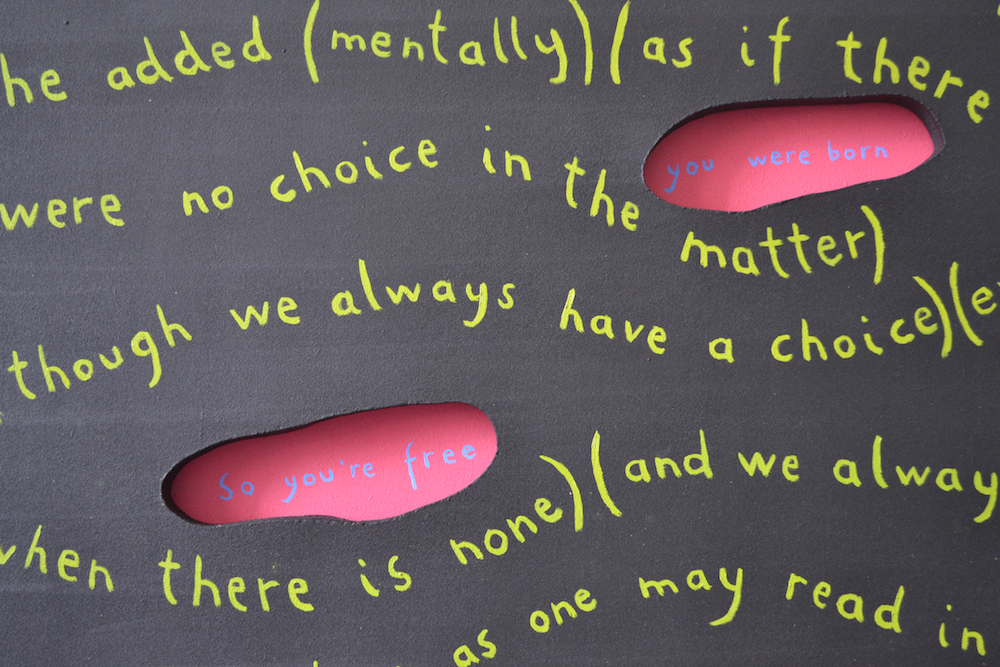 he added (mentally) (as if there
you were born
were no choice in the matter)
though we always have a choice) (e
So you're free
when there is none) (and we alway
as one may read in